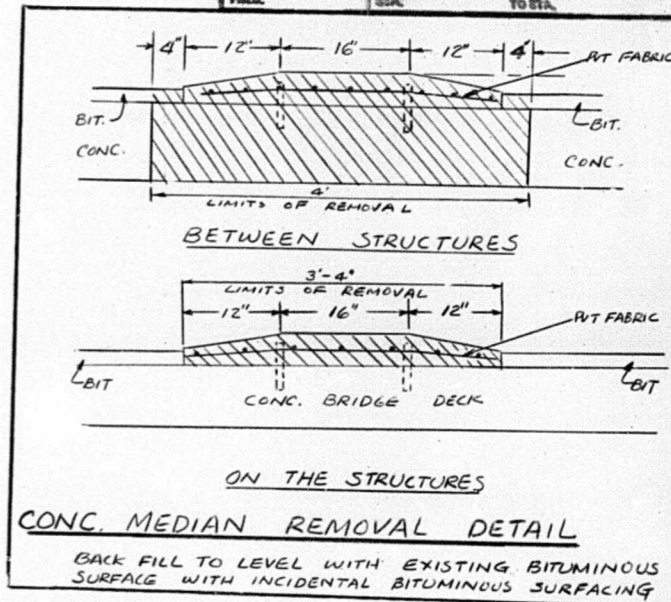 TO STA.
4" 12' 16" 12" 4'
PVT FABRIC
BIT. BIT.
CONC. CONC.
4'
LIMITS OF REMOVAL
BETWEEN STRUCTURES
3'-4"
LIMITS OF REMOVAL
12" 16" 12"
PVT FABRIC
BIT BIT
CONC. BRIDGE DECK
ON THE STRUCTURES
CONC. MEDIAN REMOVAL DETAIL
BACK FILL TO LEVEL WITH EXISTING BITUMINOUS
SURFACE WITH INCIDENTAL BITUMINOUS SURFACING